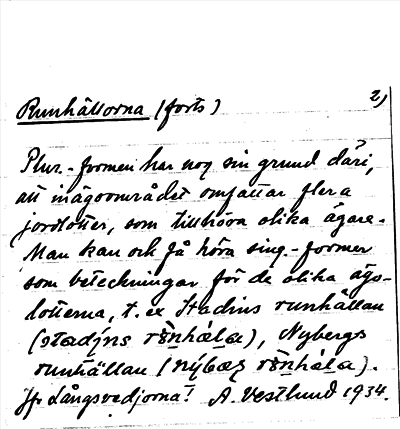 2)
Runhällorna (forts)
Plur.-formen har nog sin grund däri,
att inägoområdet omfattar flera
jordlotter, som tillhöra olika ägare.
Man kan och få höra sing.-former
som beteckningar för de olika ägo-
lotterna, t. ex Stadins runhällan
Nybergs
runhällan
Jfr Långsvedjorna! A. Vestlund 1934.